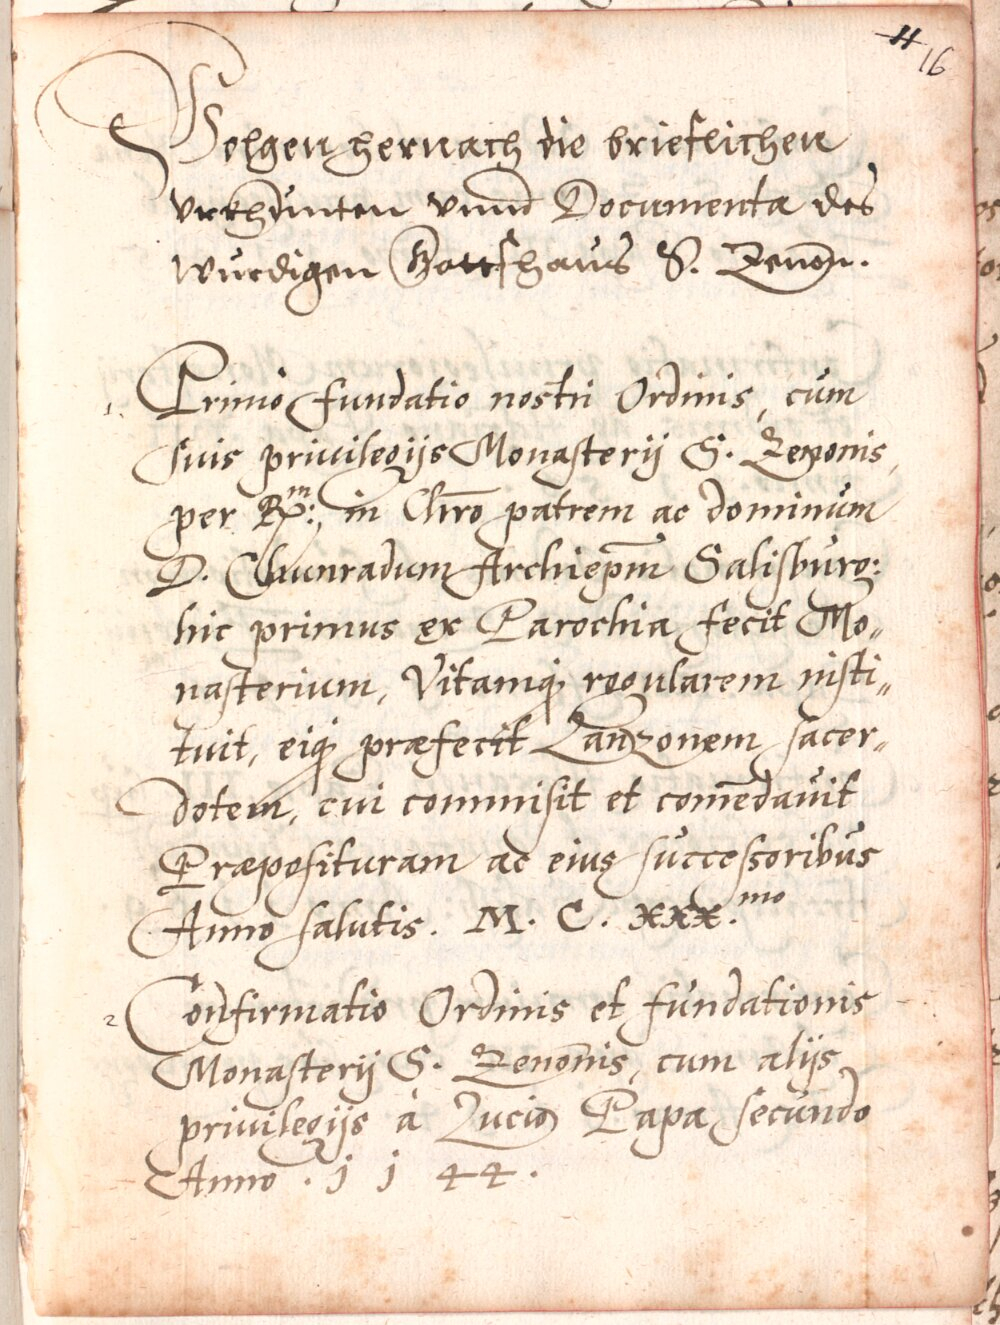 11
16
Volgen hernach die brieflichen
vrkhunten vnnd Documenta des
wurdigen Gottshaus S. Zenon.
1. Primo fundatio nostri Ordinis, cum
suis priuilegijs Monasterij S. Zenonis,
per Rm:, in Chro patrem ac dominum
D. Chunradum Archiepm Salisburg:
hic primus ex Parochia fecit Mo„
nasterium, Vitamq; regularem insti„
tuit, eiq; præfecit Lanzonem sacer„
dotem, cui commisit et comendauit
Præposituram ac eius successoribus
Anno salutis. M. C. xxx.mo
2 Confirmatio Ordinis et fundationis
Monasterij S. Zenonis, cum alijs
priuilegijs à Lucio Papa secundo
Anno . 1 1 4 4 .